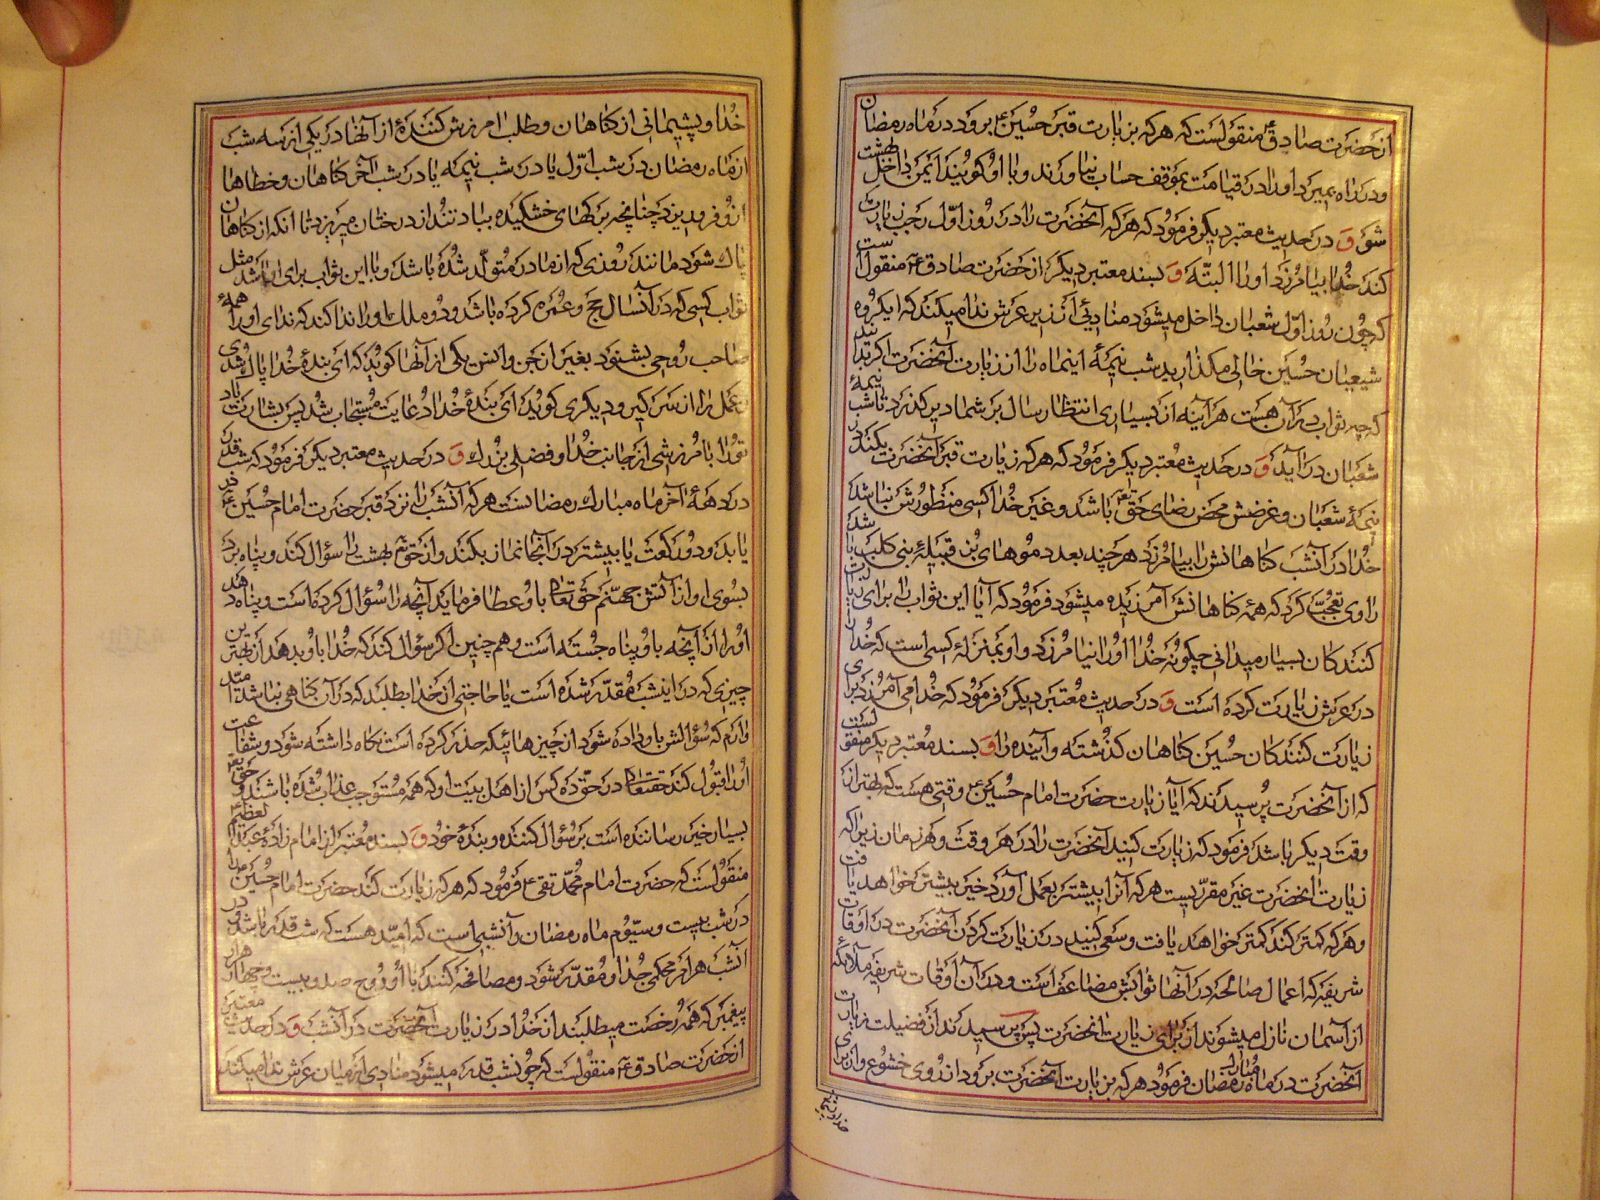 از حضرت صادق ع منقولست که هر که بزیارت قبر حسین ع برود در ماه رمضان
و در راه بمیرد او را در قیامت بموقف حساب نیاورند و با او گویند ایمن داخل بهشت
شو و در حدیث معتبر دیگر فرمود که هر که آنحضرت را در روز اول رجب زیارت
کند خدا بیامرزد او را البته و بسند معتبر دیگر از حضرت صادق ع منقولست
که چون روز اول شعبان داخل میشود منادیی از زیر عرش ندا میکند که ایگروه
شیعیان حسین خالی مگذارید شب نیمه اینماه را از زیارت آنحضرت اگر بدانید
که چه ثواب در آن هست هر آینه از بسیاری انتظار سال بر شما دیر گذرد تا شب نیمهٔ
شعبان در آید و در حدیث معتبر دیگر فرمود که هر که زیارت قبر آنحضرت بکند در
نیمهٔ شعبان و غرضش محض رضای حق تع باشد و غیر خدا کسی منظورش نباشد
خدا در آنشب گناهانش را بیامرزد هر چند بعدد موهای بز قبیلهٔ بنی کلب باشد
راوی تعجب کرد که همه گناهانش آمرزیده میشود فرمود که آیا این ثواب را برای زیارت
کنندگان بسیار میدانی چگونه خدا او را نیامرزد و او بمنزلهٔ کسی است که خدا را
در عرش زیارت کرده است و در حدیث معتبر دیگر فرمود که خدا می آمرزد برای
زیارت کنندگان حسین گناهان گذشته و آینده را و بسند معتبر دیگر منقولست
که از آنحضرت پرسیدند که آیا زیارت حضرت امام حسین ع وقتی هست که بهتر از
وقت دیگر باشد فرمود که زیارت کنید آنحضرت را در هر وقت و هر زمان زیرا که
زیارت آنحضرت خیر مقرریست هر که آنرا بیشتر بعمل آورد خیر بیشتر خواهد یافت
و هر که کمتر کند کمتر خواهد یافت و سعی کنید در زیارت کردن آنحضرت در اوقات
شریفه که اعمال صالحه در آنها ثوابش مضاعف است و در آن اوقات شریفه ملائکه
از آسمان نازل میشوند از برای زیارت آنحضرت پس پرسیدند از فضیلت زیارت
آنحضرت در ماه مبارک رمضان فرمود هر که بزیارت آنحضرت برود از روی خشوع و از برای
خدا و پشیمانی از گناهان و طلب امرزش کننده از آنها در یکی از سه شب
از ماه رمضان در شب اول یا در شب نیمه یا در شب آخر گناهان و خطاها
از و فرو ریزد چنانچه برگهای خشکیده بباد تند از درختان میریزد تا آنکه از گناهان
پاک شود مانند روزی که از مادر متولد شده باشد و با این ثواب برای او باشد مثل
ثواب کسی که در آنسال حج و عمره کرده باشد و دو ملک او را ندا کند که ندای او را همهٔ
صاحب روحی بشنود بغیر از جن و انس یکی از آنها گوید که ای بندهٔ خدا پاک شدی
عمل را از سر گیر و دیگری گوید ای بندهٔ خدا دعایت مستجاب شد پس بشارت باد
تو را بامرزشی از جانب خدا و فضلی بزرگ و در حدیث معتبر دیگر فرمود که شب قدر
در دههٔ آخر ماه مبارک رمضانست هر که آنشب را نزد قبر حضرت امام حسین ع در
یابد و دو رکعت یا بیشتر در آنجا نماز بکند و از حق تع بهشت را سؤال کند و پناه برد
بسوی او از آتش جهنم حق تعالی باو عطا فرماید آنچه را سؤال کرده است و پناه دهد
او را از آنچه باو پناه جسته است و هم چنین اگر سؤال کند که خدا باو بدهد از بهترین
چیزی که در اینشب مقدر شده است یا حاجتی از خدا بطلبد که در آن گناهی نباشد
دارم که سؤالش باو داده شود از چیزهائیکه حذر کرده است نگاه داشته شود و شفاعت
او را قبول کند حقتعالی در حق ده کس از اهل بیت او که همه مستوجب عذاب شده باشند و حق تع
بسیار خیر رساننده است بر سؤال کننده و بندهٔ خود و بسند معتبر از امام زاده عبدالعظیم
منقولست که حضرت امام محمد تقی ع فرمود که هر که زیارت کند حضرت امام حسین را
در شب بیست و سیوم ماه رمضان و آنشبیاست که امید هست که شب قدر باشد و در
آنشب هر امر محکمی جدا و مقدر شود و مصافحه کنند با او روح صد و بیست و چهار هزار
پیغمبر که همه رخصت میطلبند از خدا در زیارت آنحضرت در آنشب و در حدیث معتبر
از حضرت صادق ع منقولست که چونشب قدر میشود منادی از میان عرش ندا میکند